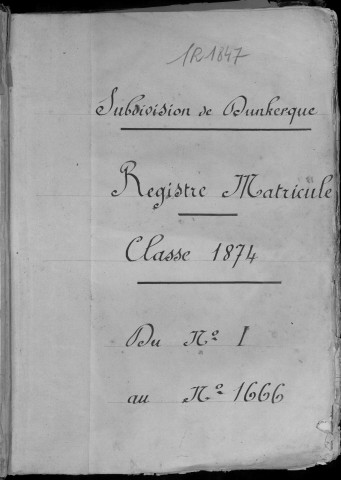 1R1847
Subdivision de Dunkerque
Registre Matricule
Classe 1874
Du Nº 1
au Nº 1666